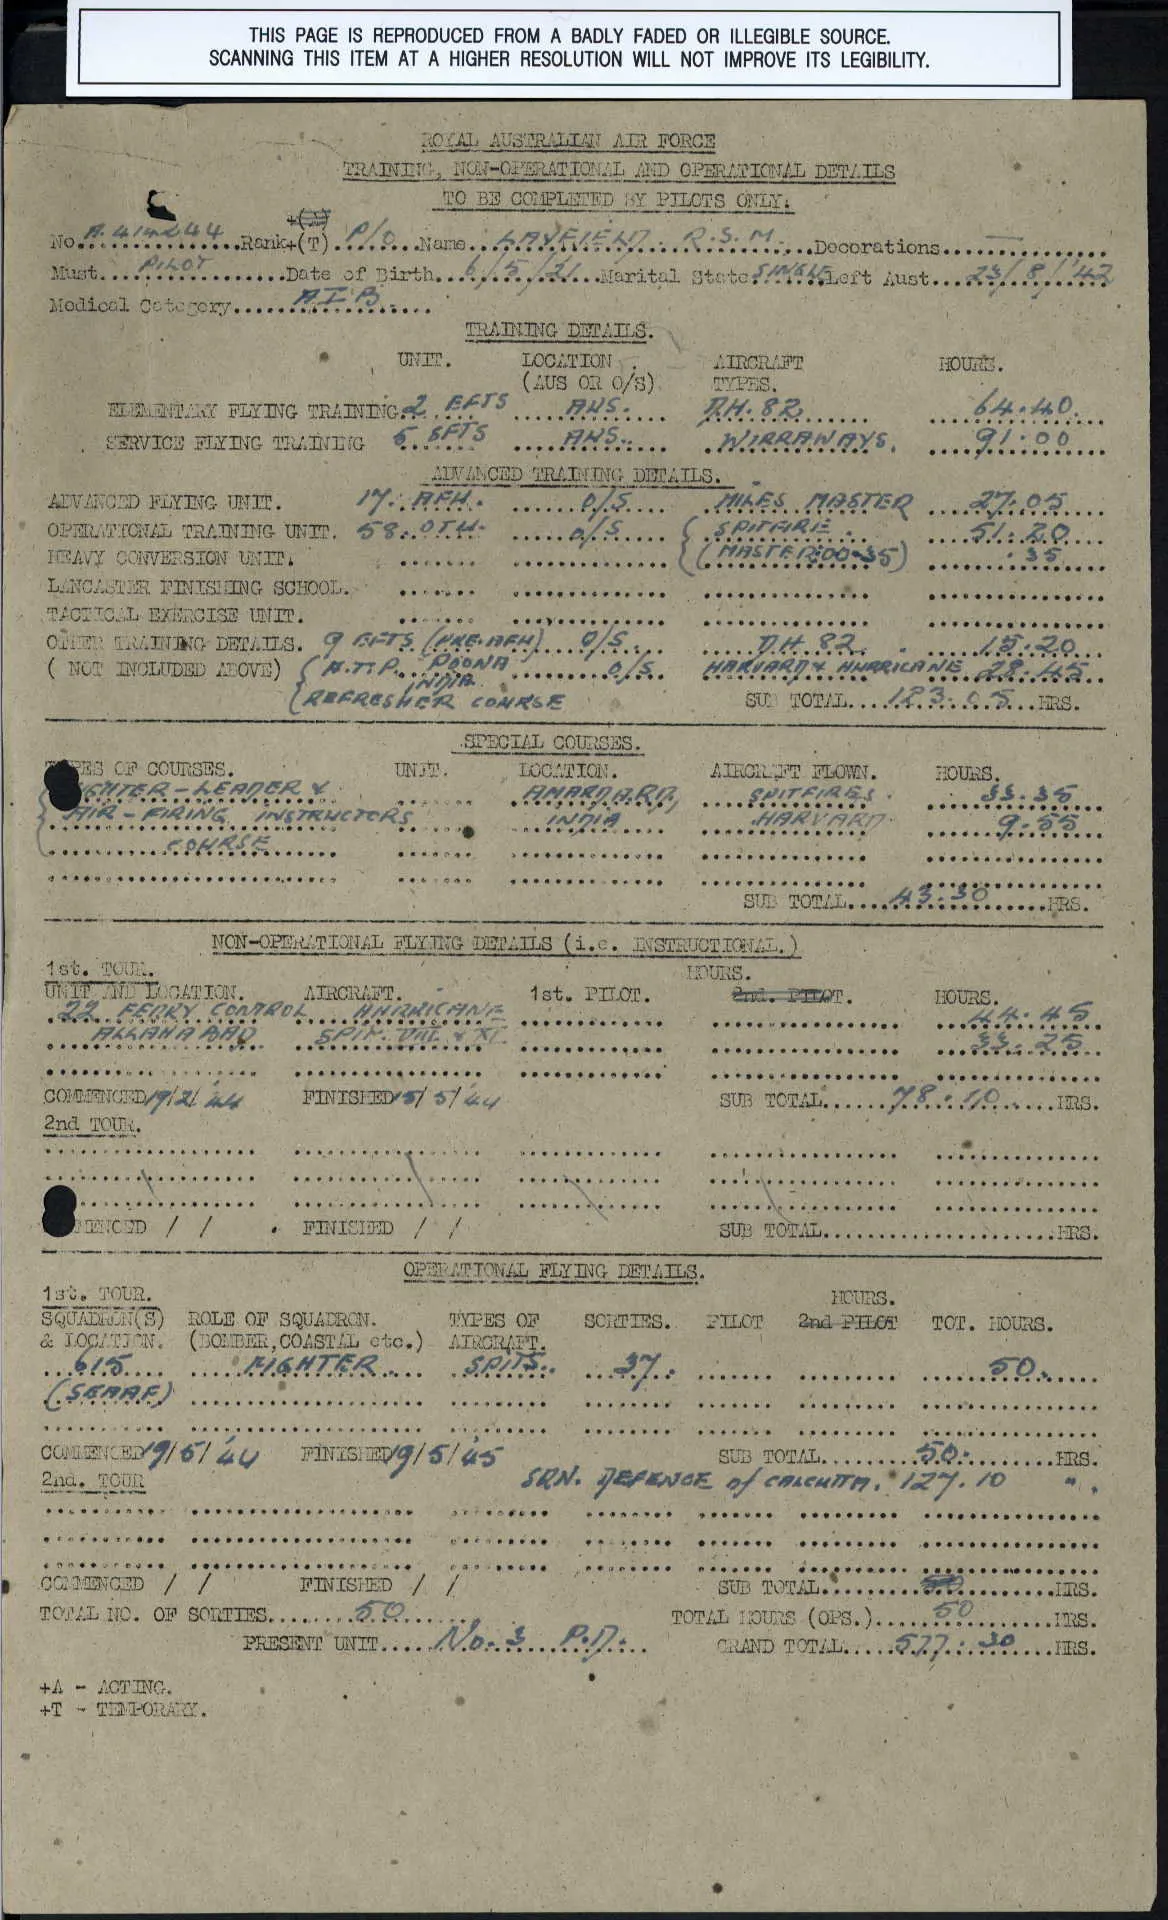 THIS PAGE IS REPRODUCED FROM A BADLY FADED OR ILLEGIBLE SOURCE.
SCANNING THIS ITEM AT A HIGHER RESOLUTION WILL NOT IMPROVE ITS LEGIBILITY.
ROYAL AUSTRALIAN AIR FORCE
TRAINING, NON-OPERATIONAL AND OPERATIONAL DETAILS
TO BE COMPLETED BY PILOTS ONLY.
No. A.414244 Rank+(T) P/O Name LAYFIELD. R.S.M. Decorations —
Must. PILOT Date of Birth 6/5/21 Marital State SINGLE Left Aust. 23/8/'42
Medical Category A I B.
TRAINING DETAILS.
UNIT. LOCATION. AIRCRAFT HOURS.
(AUS OR O/S) TYPES.
ELEMENTARY FLYING TRAINING 2 EFTS AUS. D.H. 82 64.40
SERVICE FLYING TRAINING 5 SFTS AUS. WIRRAWAYS. 91.00
ADVANCED TRAINING DETAILS.
ADVANCED FLYING UNIT. 17. AFU. O/S MILES MASTER 27.05
OPERATIONAL TRAINING UNIT. 58. OTU. O/S SPITFIRE 51.20
HEAVY CONVERSION UNIT. (MASTER:00.35) .35
LANCASTER FINISHING SCHOOL.
TACTICAL EXERCISE UNIT.
OTHER TRAINING DETAILS. 9 EFTS (PRE.AFU) O/S. D.H. 82. 15.20
( NOT INCLUDED ABOVE) POONA O/S HARVARD & HURRICANE 28.45
INDIA
REFRESHER COURSE SUB TOTAL 123.05 HRS.
SPECIAL COURSES.
TYPES OF COURSES. UNIT. LOCATION. AIRCRAFT FLOWN. HOURS.
FIGHTER-LEADER & AMARDA RD, SPITFIRES 33.35
AIR-FIRING INSTRUCTORS INDIA HARVARD 9.55
COURSE
SUB TOTAL 43.30 HRS.
NON-OPERATIONAL FLYING DETAILS (i.e. INSTRUCTIONAL.)
1st. TOUR. HOURS.
UNIT AND LOCATION. AIRCRAFT. 1st. PILOT. 2nd. PILOT. HOURS.
22 FERRY CONTROL HURRICANE 44.45
ALLAHABAD SPIT. VIII & XI. 33.25
COMMENCED 19/2/'44 FINISHED 15/5/'44 SUB TOTAL 78.10 HRS.
2nd TOUR.
COMMENCED / / FINISHED / / SUB TOTAL HRS.
OPERATIONAL FLYING DETAILS.
1st. TOUR. HOURS.
SQUADRON(S) ROLE OF SQUADRON. TYPES OF SORTIES. PILOT 2nd PILOT TOT. HOURS.
& LOCATION. (BOMBER,COASTAL etc.) AIRCRAFT.
615 FIGHTER SPITS. 37. 50.
(SEAAF)
COMMENCED 19/5/'44 FINISHED 19/5/'45 SUB TOTAL 50. HRS.
2nd. TOUR SQN. DEFENCE of CALCUTTA. 127.10 "
COMMENCED / / FINISHED / / SUB TOTAL HRS.
TOTAL NO. OF SORTIES 50 TOTAL HOURS (OPS.) 50 HRS.
PRESENT UNIT No. 3 P.D. GRAND TOTAL 577.30 HRS.
+A - ACTING.
+T - TEMPORARY.